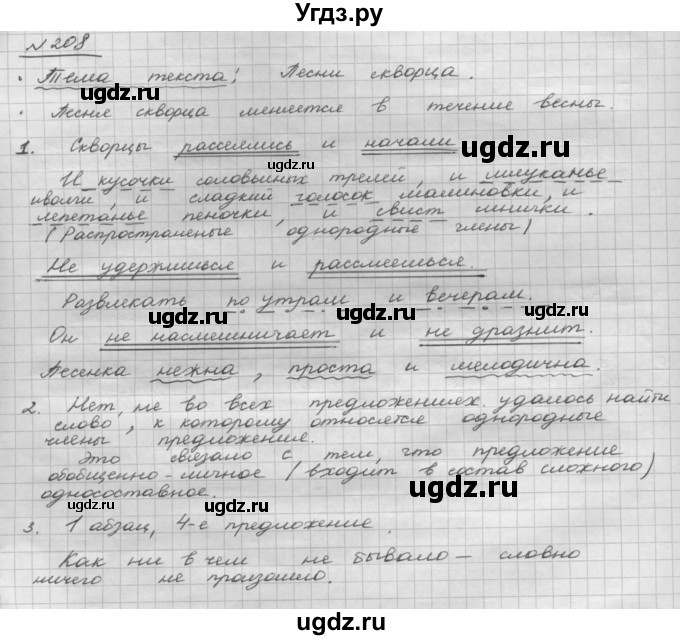 Угдз.ру
№ 208
• Тема текста: Песни скворца.
• Песня скворца меняется в течение весны.
1. Скворцы расселись и начали
И кусочки соловьиных трелей, и мяуканье
иволги, и сладкий голосок малиновки, и
лепетанье пеночки, и свист синички.
(Распространеные однородные члены)
Не удержишься и рассмеешься.
Развлекать по утрам и вечерам.
Он не насмешничает и не дразнит.
Песенка нежна, проста и мелодична.
2. Нет, не во всех предложениях удалось найти
слово, к которому относятся однородные
члены предложения.
Это связано с тем, что предложение
обобщенно-личное (входит в состав сложного)
односоставное.
3. 1 абзац, 4-е предложение.
Как ни в чем не бывало – словно
ничего не произошло.
ugdz.ru
ugdz.ru
ugdz.ru
ugdz.ru
ugdz.ru
ugdz.ru
ugdz.ru
ugdz.ru
ugdz.ru
ugdz.ru
ugdz.ru
ugdz.ru
ugdz.ru